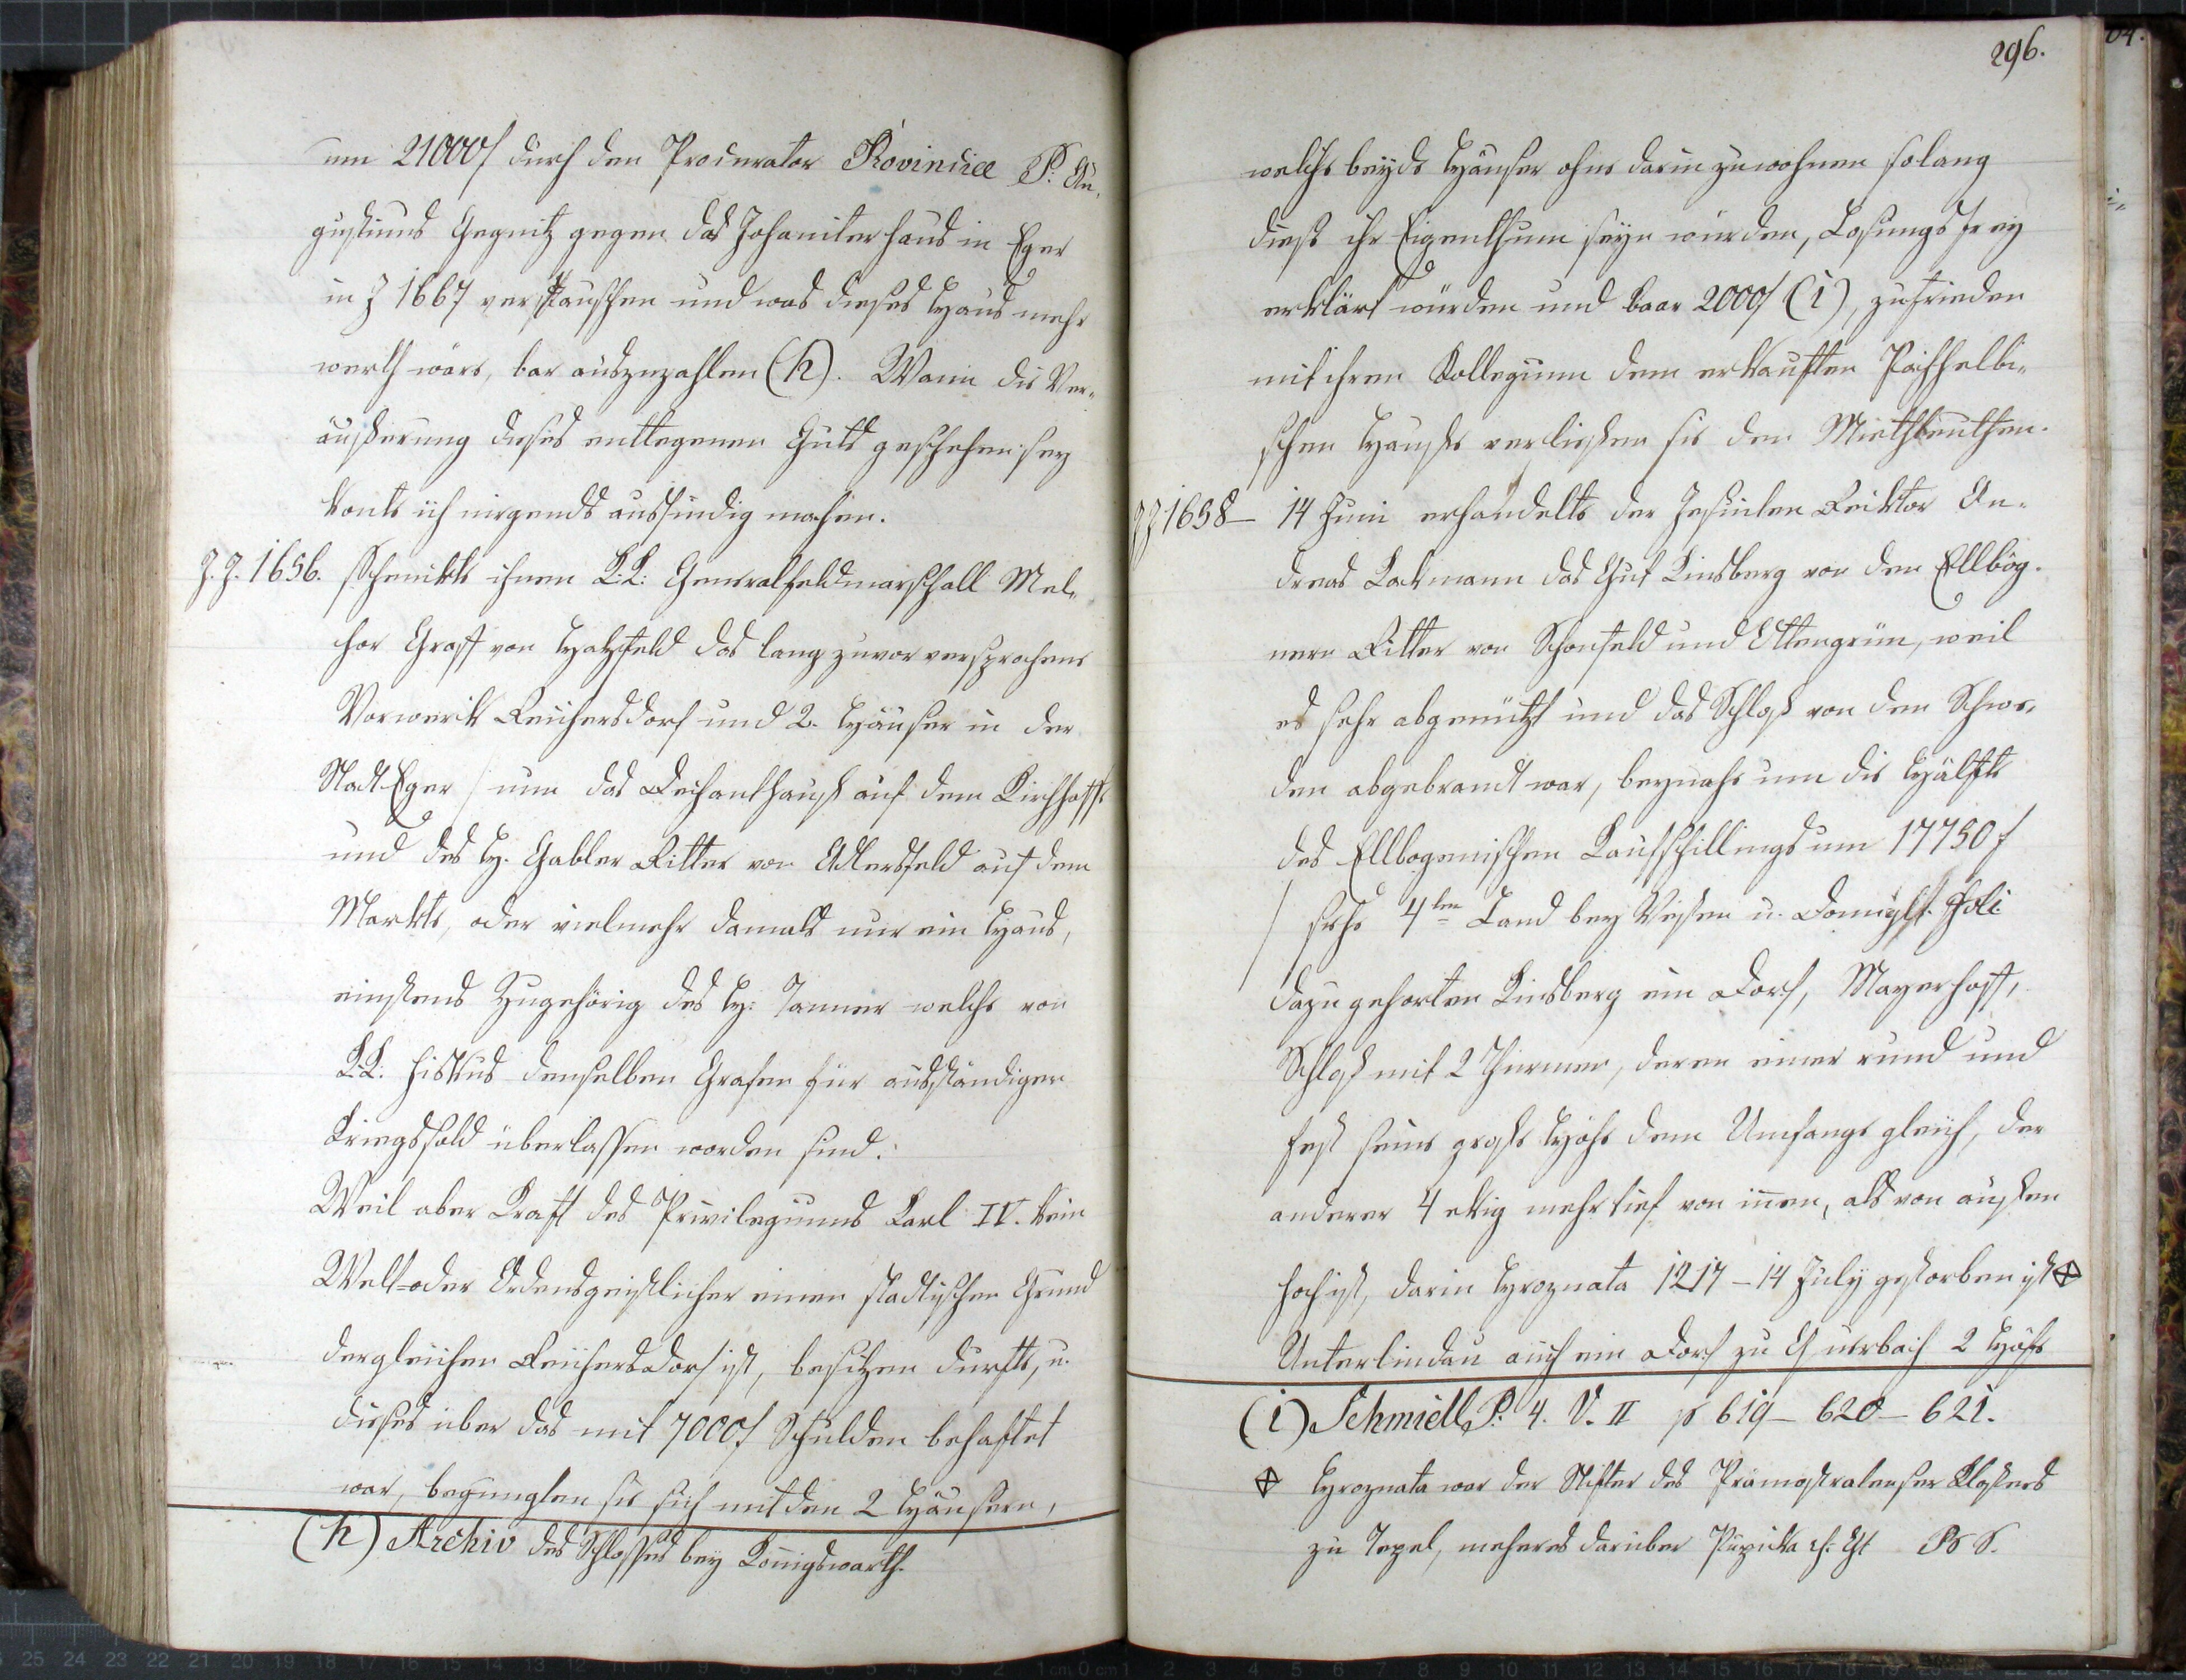 um 21000f durch den Procurator Provinciae P. Au„
gustinus Gegnitz gegen das Johaniterhaus in Eger
in J 1667 verstauschen und was dieses Haus mehr
werth wäre, bar auszuzahlen (h). Wann die Ver„
äußerung dieses entlegenen Guts geschehen sey
konte ich nirgends ausfindig machen.
J. J. 1656. Schenkte ihnen K.K. Generalfeldmarschall Mel„
chor Graff von Hatzfeld das lang zuvor versprochene
Vorwerk Reichersdorf und 2. Häuser in der
Stadt Eger / nun das Dechanthauß auf dem Kirchhoffe
und des H. Gabler Ritter von Adlersfeld auf dem
Markte, oder vielmehr damals nur ein Haus,
einstens Zugehörig des H: Tanner welche von
K.K. Fiskus denselben Grafen für ausständigen
Kriegssold überlassen worden sind.
Weil aber Kraft des Privilegiums Karl IV. kein
Welt- oder Ordensgeistlicher einen stadtischen Grund
dergleichen Reichersdorf ist, besitzen durfte, u.
dieses über das mit 7000f Schulden behaftet
war, begnugten sie sich mit den 2 Häusern,
(h) Archiv des Schlosses bey Königswarth.
296.
welche beyde Häuser ohne darin zu wohnen solang
dieß ihr Eigenthum seyn würden, Losungs frey
erklärt würden und baar 2000f (i), zufrieden
mit ihrem Kollegium dem erkauften Pachhelbi„
schen Hauße verließen sie den Miethleuthen.
J J 1658 – 14 Juni erhandelte der Jesuiten Rektor An„
dreas Lackmann das Gut Kinsberg von den Ellbög„
nern Ritter von Schonfeld und Ottengrün, weil
es sehr abgenützt und das Schloß von den Schwe„
den abgebrandt war, beynahe um die Hälfte
des Ellbogenischen Kaufschillings um 17750 f
/ siehe 4ten Band bey Vesten u.
dazu gehorten Kinsberg ein Dorf, Mayerhoff,
Schloß mit 2 Thurmen, deren einer rund und
fest seine große Höhe dem Umfange gleich, der
anderer 4 ekig mehr tief von innen, als von außen
hoch ist, darin Hroznata 1217 – 14 July gestorben ist
Unterlindau auch ein Dorf zu 2 Höfe
(i) Schmidl P. 4. V. II p 619 – 620 – 621.
Hroznata war der Stifter des Prämostratenser Klosters
zu Tepel, mehreres darüber